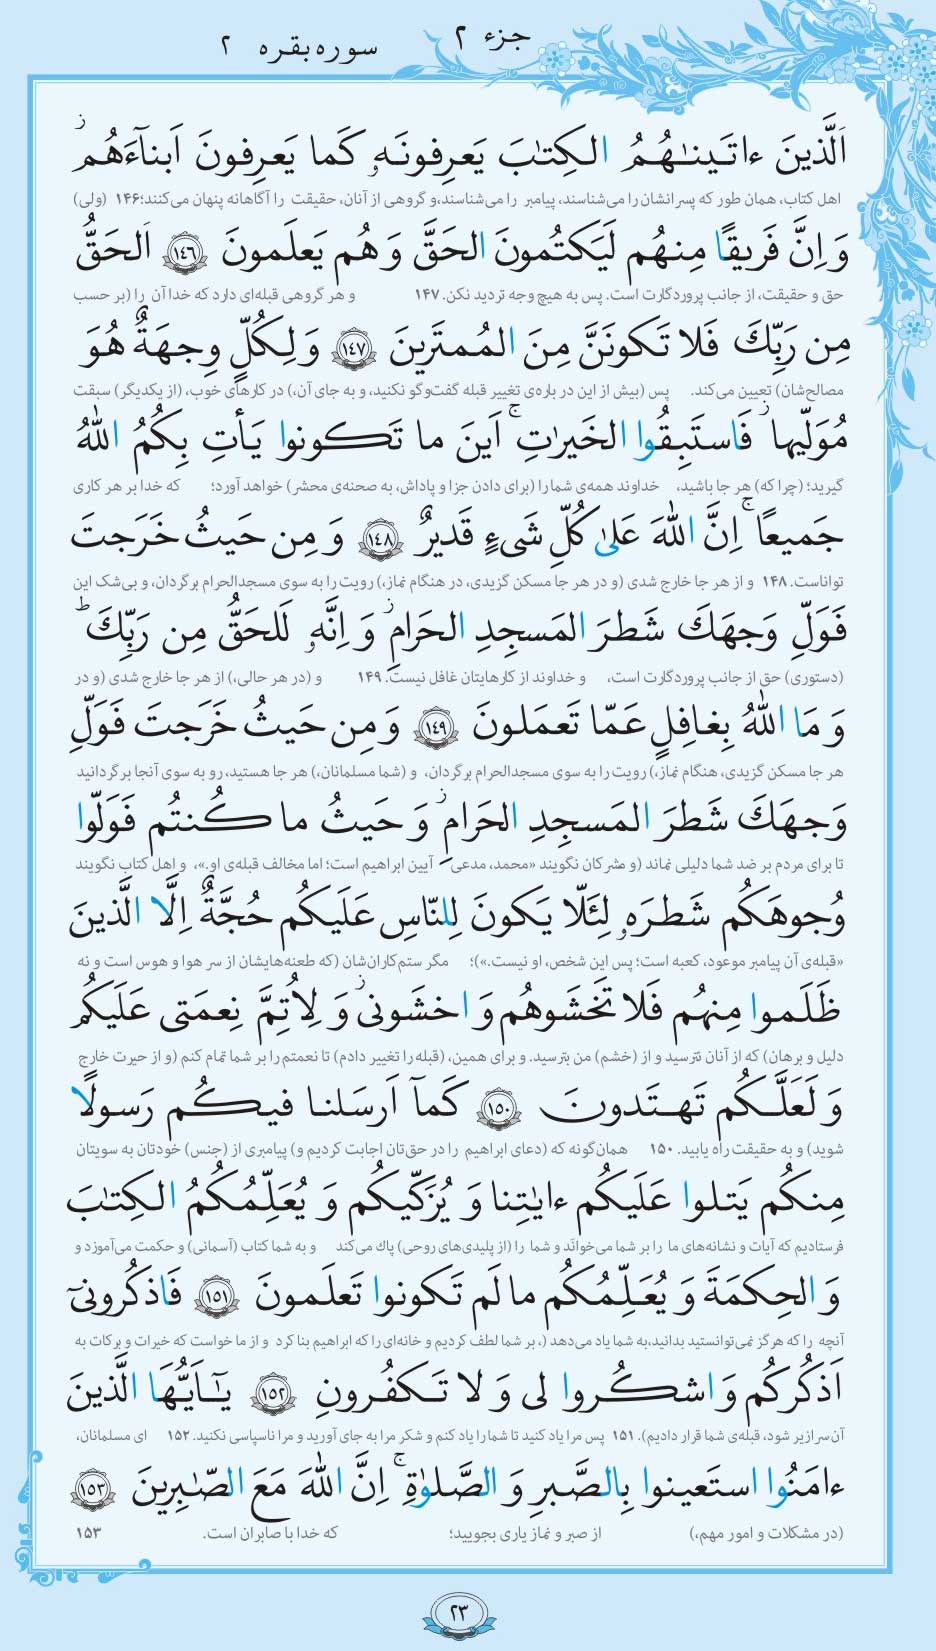 جزء ۲
سوره بقره ۲
اَلَّذينَ ءاتَينٰهُمُ الكِتٰبَ يَعرِفونَهٗ كَما يَعرِفونَ اَبناۤءَهُم ۖ
اهل کتاب، همان طور که پسرانشان را می‌شناسند، پیامبر را می‌شناسند، و گروهی از آنان، حقیقت را آگاهانه پنهان می‌کنند؛ ۱۴۶ (ولی)
وَ اِنَّ فَريقًا مِنهُم لَيَكتُمونَ الحَقَّ وَ هُم يَعلَمونَ ﴿١٤٦﴾ اَلحَقُّ
حق و حقیقت، از جانب پروردگارت است. پس به هیچ وجه تردید نکن. ۱۴۷ و هر گروهی قبله‌ای دارد که خدا آن را (بر حسب
مِن رَبِّكَ فَلا تَكونَنَّ مِنَ المُمتَرينَ ﴿١٤٧﴾ وَ لِكُلٍّ وِجهَةٌ هُوَ
مصالحشان) تعیین می‌کند. پس (بیش از این در باره‌ی تغییر قبله گفت‌وگو نکنید، و به جای آن،) در کارهای خوب، (از یکدیگر) سبقت
مُوَلّيها ۖ فَاستَبِقُوا الخَيرٰتِ ۚ اَينَ ما تَكونوا يَأتِ بِكُمُ اللّٰهُ
گیرید؛ (چرا که) هر جا باشید، خداوند همه‌ی شما را (برای دادن جزا و پاداش، به صحنه‌ی محشر) خواهد آورد؛ که خدا بر هر کاری
جَميعًا ۚ اِنَّ اللّٰهَ عَلىٰ كُلِّ شَيءٍ قَديرٌ ﴿١٤٨﴾ وَ مِن حَيثُ خَرَجتَ
تواناست. ۱۴۸ و از هر جا خارج شدی (و در هر جا مسکن گزیدی، در هنگام نماز،) رویت را به سوی مسجدالحرام برگردان، و بی‌شک این
فَوَلِّ وَجهَكَ شَطرَ المَسجِدِ الحَرامِ ۖ وَ اِنَّهٗ لَلحَقُّ مِن رَبِّكَ ۗ
(دستوری) حق از جانب پروردگارت است، و خداوند از کارهایتان غافل نیست. ۱۴۹ و (در هر حالی،) از هر جا خارج شدی (و در
وَ مَا اللّٰهُ بِغافِلٍ عَمّا تَعمَلونَ ﴿١٤٩﴾ وَ مِن حَيثُ خَرَجتَ فَوَلِّ
هر جا مسکن گزیدی، هنگام نماز،) رویت را به سوی مسجدالحرام برگردان، و (شما مسلمانان،) هر جا هستید، رو به سوی آنجا برگردانید
وَجهَكَ شَطرَ المَسجِدِ الحَرامِ ۚ وَ حَيثُ ما كُنتُم فَوَلّوا
تا برای مردم بر ضد شما دلیلی نماند (و مشرکان نگویند «محمد، مدعی آیین ابراهیم است؛ اما مخالف قبله‌ی او.»، و اهل کتاب نگویند
وُجوهَكُم شَطرَهٗ لِئَلّا يَكونَ لِلنّاسِ عَلَيكُم حُجَّةٌ اِلَّا الَّذينَ
«قبله‌ی آن پیامبر موعود، کعبه است؛ پس این شخص، او نیست.»)؛ مگر ستم‌کاران‌شان (که طعنه‌هایشان از سر هوا و هوس است و نه
ظَلَموا مِنهُم فَلا تَخشَوهُم وَ اخشَوني ۖ وَ لِاُتِمَّ نِعمَتي عَلَيكُم
دلیل و برهان) که از آنان نترسید و از (خشم) من بترسید. و برای همین، (قبله را تغییر دادم) تا نعمتم را بر شما تمام کنم (و از حیرت خارج
وَ لَعَلَّكُم تَهتَدونَ ﴿١٥٠﴾ كَماۤ اَرسَلنا فيكُم رَسولًا
شوید) و به حقیقت راه یابید. ۱۵۰ همان‌گونه که (دعای ابراهیم را در حق‌تان اجابت کردیم و) پیامبری از (جنس) خودتان به سویتان
مِنكُم يَتلوا عَلَيكُم ءايٰتِنا وَ يُزَكّيكُم وَ يُعَلِّمُكُمُ الكِتٰبَ
فرستادیم که آیات و نشانه‌های ما را بر شما می‌خوانَد و شما را (از پلیدی‌های روحی) پاک می‌کند و به شما کتاب (آسمانی) و حکمت می‌آموزد و
وَ الحِكمَةَ وَ يُعَلِّمُكُم ما لَم تَكونوا تَعلَمونَ ﴿١٥١﴾ فَاذكُرونيۤ
آنچه را که هرگز نمی‌توانستید بدانید، به شما یاد می‌دهد (، بر شما لطف کردیم و خانه‌ای را که ابراهیم بنا کرد و از ما خواست که خیرات و برکات به
اَذكُركُم وَ اشكُروا لي وَ لا تَكفُرونِ ﴿١٥٢﴾ يٰۤاَيُّهَا الَّذينَ
آن سرازیر شود، قبله‌ی شما قرار دادیم). ۱۵۱ پس مرا یاد کنید تا شما را یاد کنم و شکر مرا به جای آورید و مرا ناسپاسی نکنید. ۱۵۲ ای مسلمانان،
ءامَنُوا استَعينوا بِالصَّبرِ وَ الصَّلوٰةِ ۚ اِنَّ اللّٰهَ مَعَ الصّٰبِرينَ ﴿١٥٣﴾
(در مشکلات و امور مهم،) از صبر و نماز یاری بجویید؛ که خدا با صابران است. ۱۵۳
٢٣